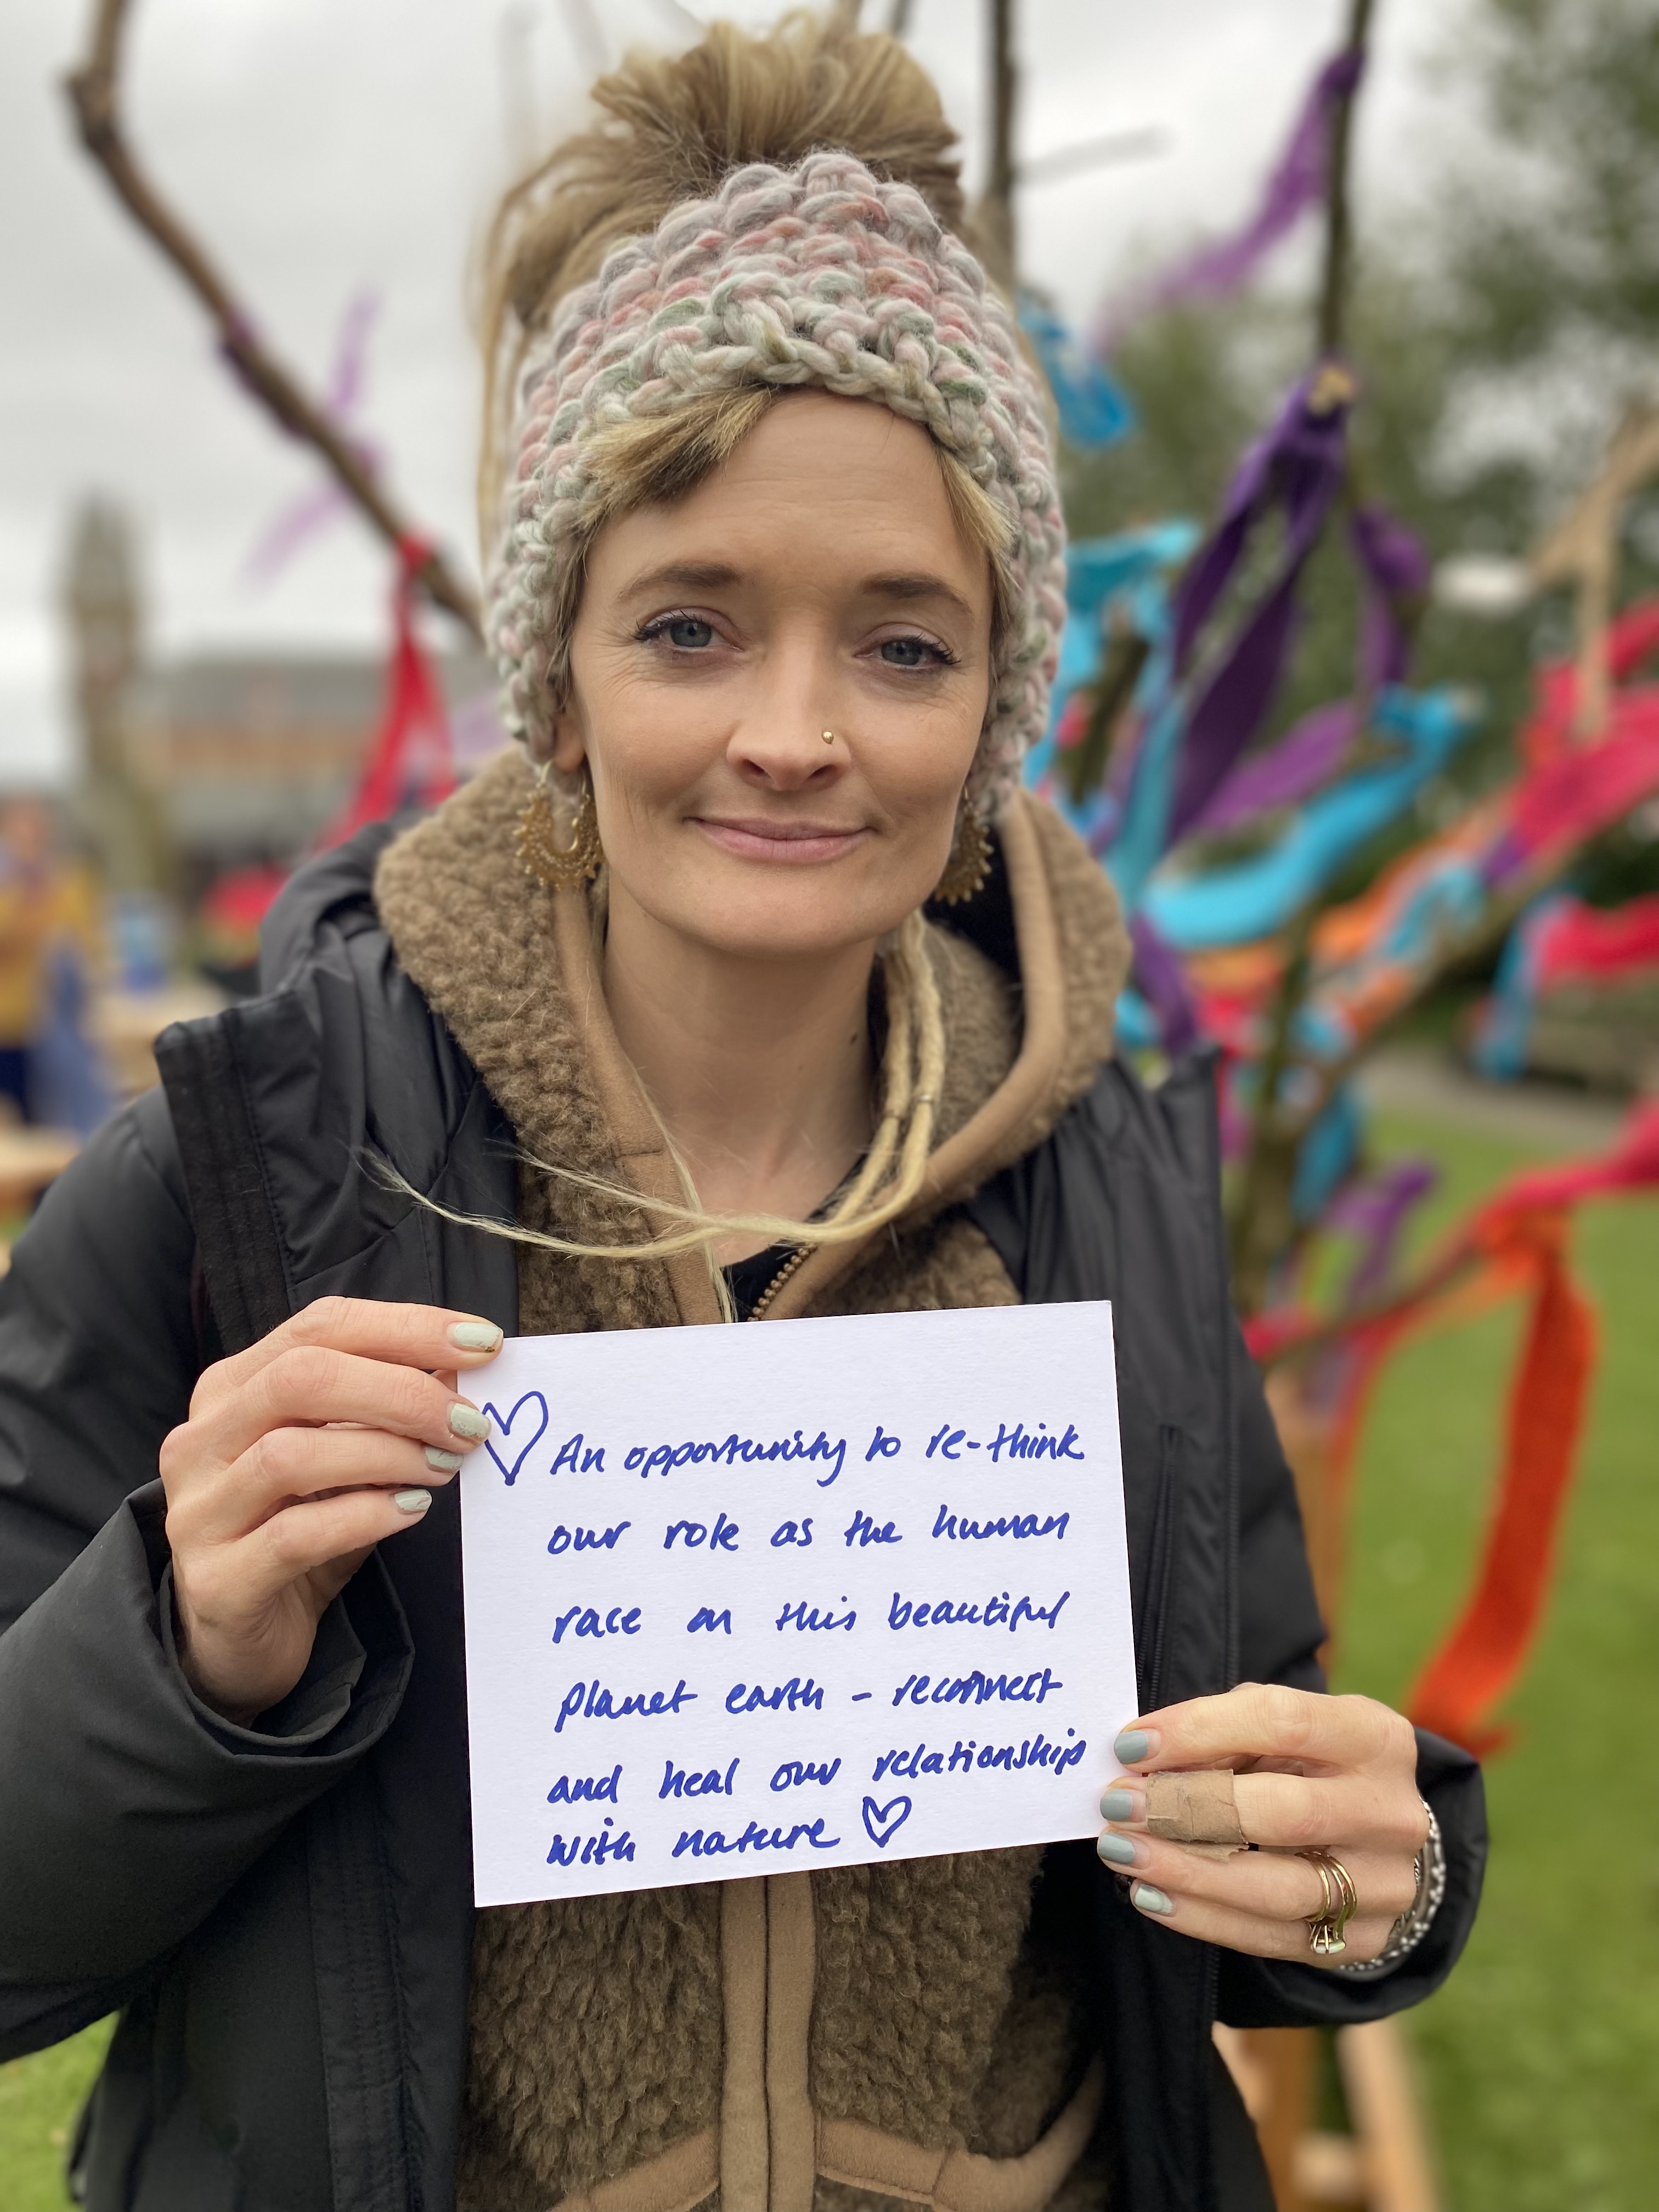 An opportunity to re-think
our role as the human
race on this beautiful
planet earth - reconnect
and heal our relationship
with nature